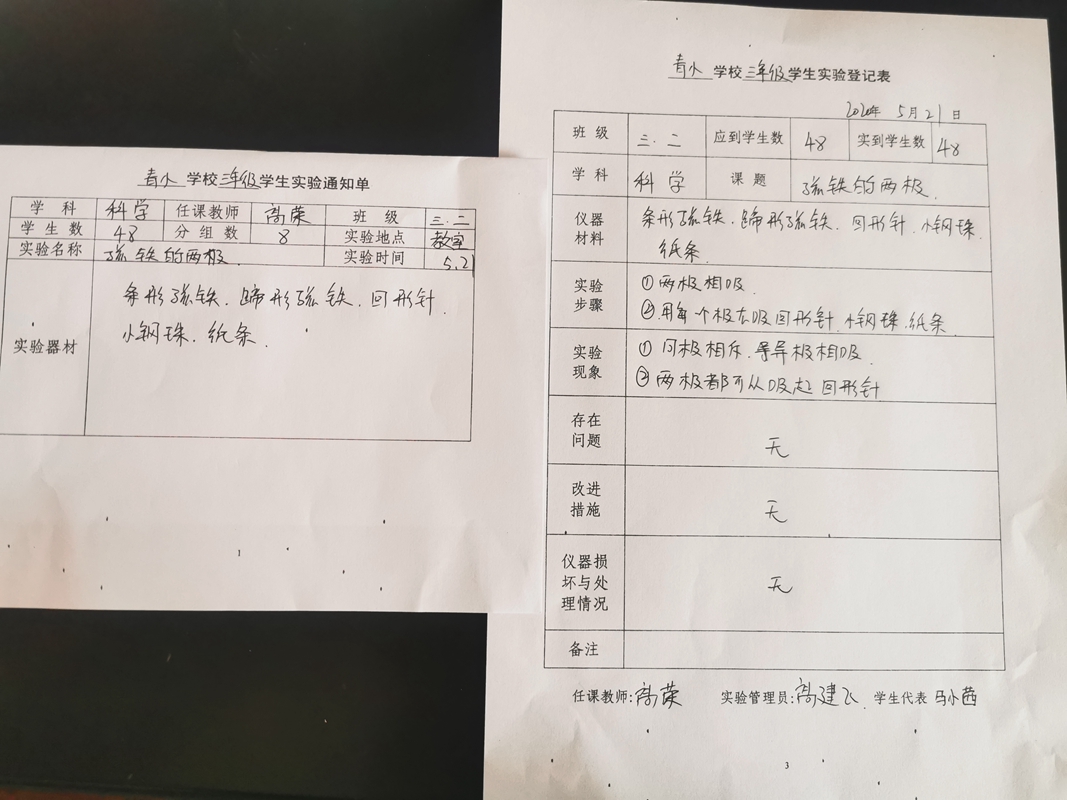 青小 学校 三年级 学生实验通知单
学科 科学 任课教师 高荣 班级 三.二
学生数 48 分组数 8 实验地点 教室
实验名称 磁铁的两极. 实验时间 5.21
实验器材 条形磁铁. 蹄形磁铁. 回形针
小钢珠. 纸条.
1
青小 学校 三年级 学生实验登记表
2020年 5月21日
班级 三.二 应到学生数 48 实到学生数 48
学科 科学 课题 磁铁的两极.
仪器材料 条形磁铁. 蹄形磁铁. 回形针. 小钢珠.
纸条.
实验步骤 ①两极相吸.
②用每个极去吸回形针. 小钢珠. 纸条.
实验现象 ①同极相斥. 异极相吸.
②两极都可以吸起回形针
存在问题 无
改进措施 无
仪器损坏与处理情况 无
备注
任课教师:高荣 实验管理员:高建飞. 学生代表 马小茜
3